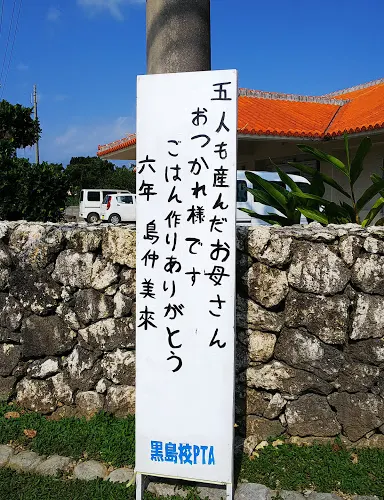 五人も産んだお母さん
おつかれ様です
ごはん作りありがとう
六年 島仲美來
黒島校PTA